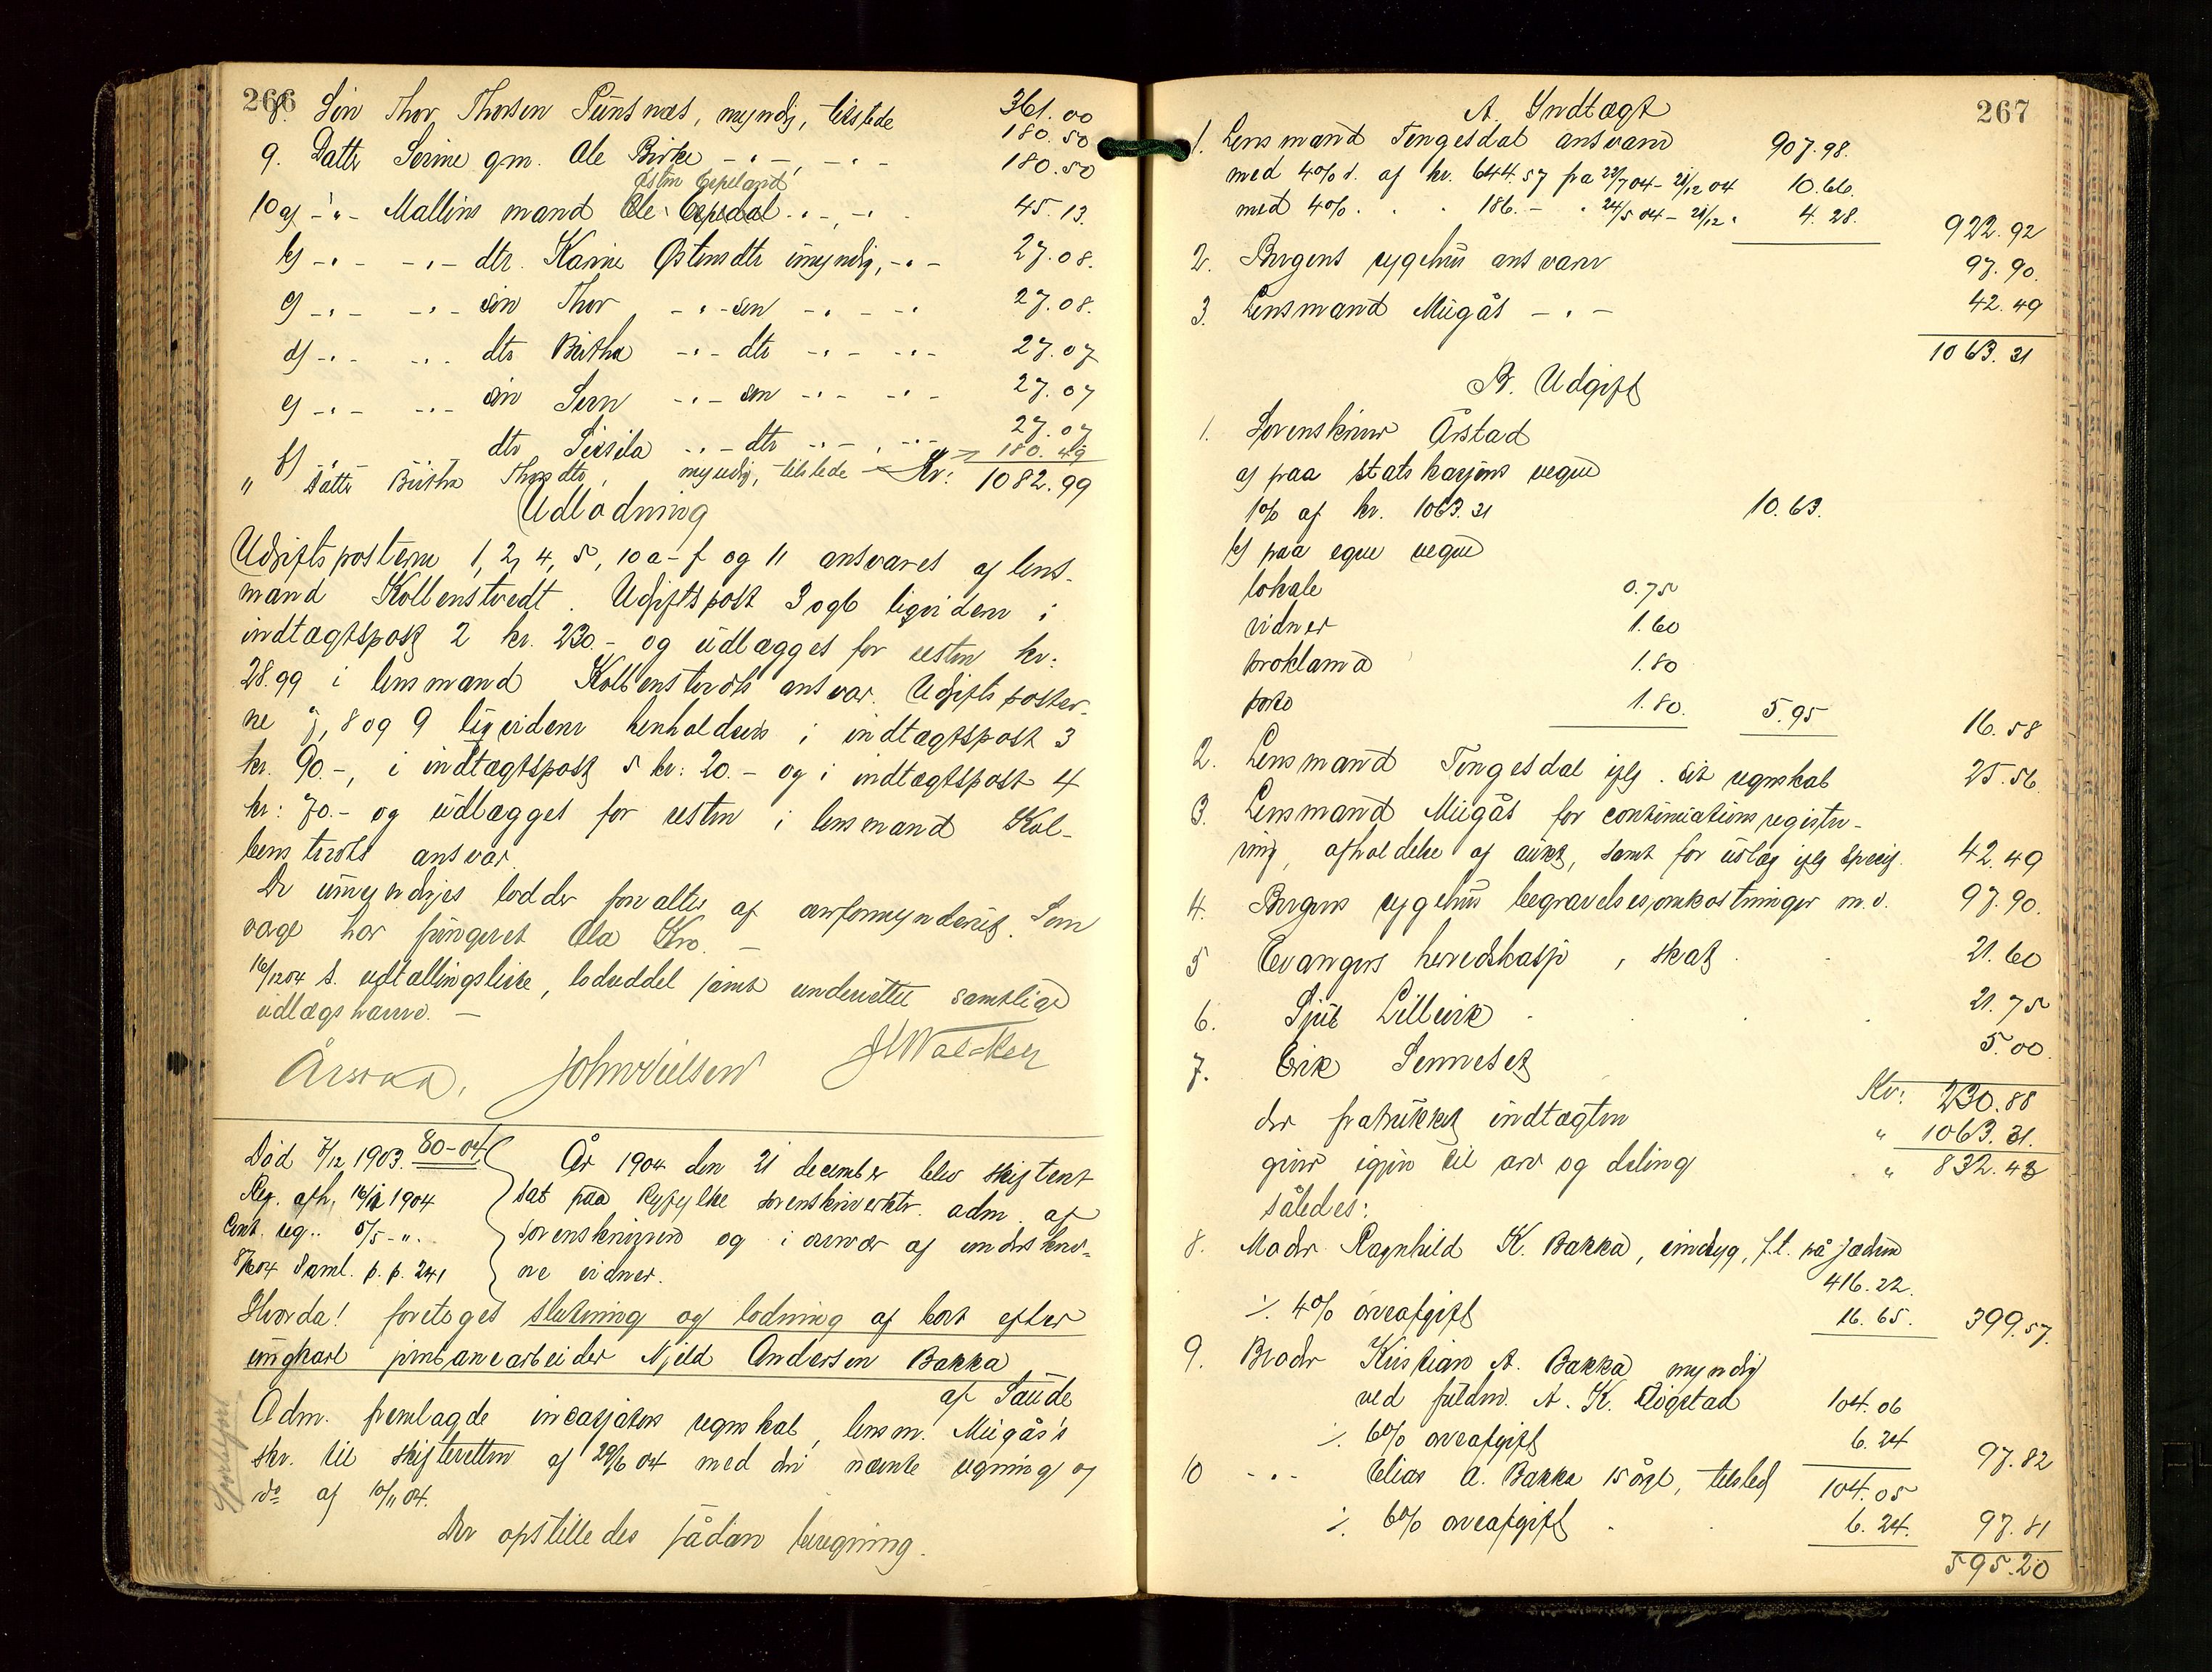 266
8. Søn Thor Thorsen Sunsnæs, myndig, tilstede 361.00
180.50
9. Datter Serine gm. Ole Birke -"- -"- 180.50
Østen Espeland
10 a) -"- Mallins mand Ole Espedal -"- -"- 45.13.
b) -"- -"- dtr. Karine Østensdtr umyndig, -"- 27.08.
c) -"- -"- søn Thor -"- sen -"- -"- 27.08.
d) -"- -"- dtr Bertha -"- dtr -"- -"- 27.07
e) -"- -"- søn Sven -"- sen -"- -"- 27.07
f) dtr Sissila -"- dtr -"- -"- 27.07
" Datter Bertha Thorsdtr, myndig, tilstede 180.49
Kr: 1082.99
Udlodning
Udgiftsposterne 1, 2, 4, 5, 10 a-f og 11 ansvares af lens-
mand Kolbenstvedt. Udgiftspost 3 og 6 liqviderer i
indtægtspost 2 kr. 230.- og udlægges for resten kr:
28.99 i lensmand Kolbenstvedts ansvar. Udgiftsposter-
ne 7, 8 og 9 liqviderer henholdsvis i indtægtspost 3
kr. 90.-, i indtægtspost 5 kr: 20.- og i indtægtspost 4
kr: 70.- og udlægges for resten i lensmand Kol-
benstvedts ansvar.
De umyndiges lodder forvaltes af overformynderiet. Som
værge har fungeret Ola Kro. -
16/12 04 s. udtællingsliste, lodseddel samt underrettet samtlige
udlægshavere. -
Årstad, John Nielsen J. Walcker
Død 7/12 1903. 80-04
Reg. afh. 16/1 1904
Cont. reg. " 5/5 - ".
8/6 04 Saml. p. p. 241
År 1904 den 21 december blev skifteret
sat paa Ryfylke sorenskriverktr. adm. af
sorenskriveren og i overvær af underskrev-
ne vidner.
Hvorda! foretoges slutning og lodning af boet efter
ungkarl jernbanearbeider Njeld Andersen Bakka
af Saude
Adm. fremlagde incassators regnskab, lensm. Mügås's
skr. til skifteretten af 29/6 04 med den nævnte regning og
do af 10/11 04.
Der opstilledes sådan beregning.
267
A. Indtægt
1. Lensmand Tengesdal ansvarer 907.98.
med 4% r. af kr. 644.57 fra 22/7 04 - 21/12 04 10.66.
med 4% " " 186.- " 24/5 04 - 21/12 " 4.28. 922.92
2. Bergens sygehus ansvarer 97.90.
3. Lensmand Mügås -"- 42.49
1063.31
B. Udgift
1. Sorenskriver Årstad
a) paa statskassens vegne
1% af kr. 1063.31 10.63.
b) paa egne vegne
lokale 0.75
vidner 1.60
proklama 1.80
porto 1.80. 5.95 16.58
2. Lensmand Tengesdal iflg. sit regnskab 25.56
3. Lensmand Mügås for continuationsregistre-
ring, afholdelse af aukt, samt for udlæg iflg specif. 42.49
4. Bergens sygehus begravelsesomkostninger m.v. 97.90.
5 Evangers herredskasse, skat 21.60
6. Sjur Lillevik 21.75
7. Erik Senneset 5.00.
Kr: 230.88
der fratrukket indtægten " 1063.31.
giver igjen til arv og deling " 832.43
således:
8. Moder Ragnhild K. Bakka, f.t. på Jæderen
416.22.
÷ 4% arveafgift 16.65. 399.57.
9. Broder Kristian A. Bakka myndig
ved fuldm. A. K. Løgstad 104.06
÷ 6% arveafgift 6.24 97.82
10 -"- Elias A. Bakka 15 årg., tilsted 104.05
÷ 6% arveafgift 6.24. 97.81
595.20